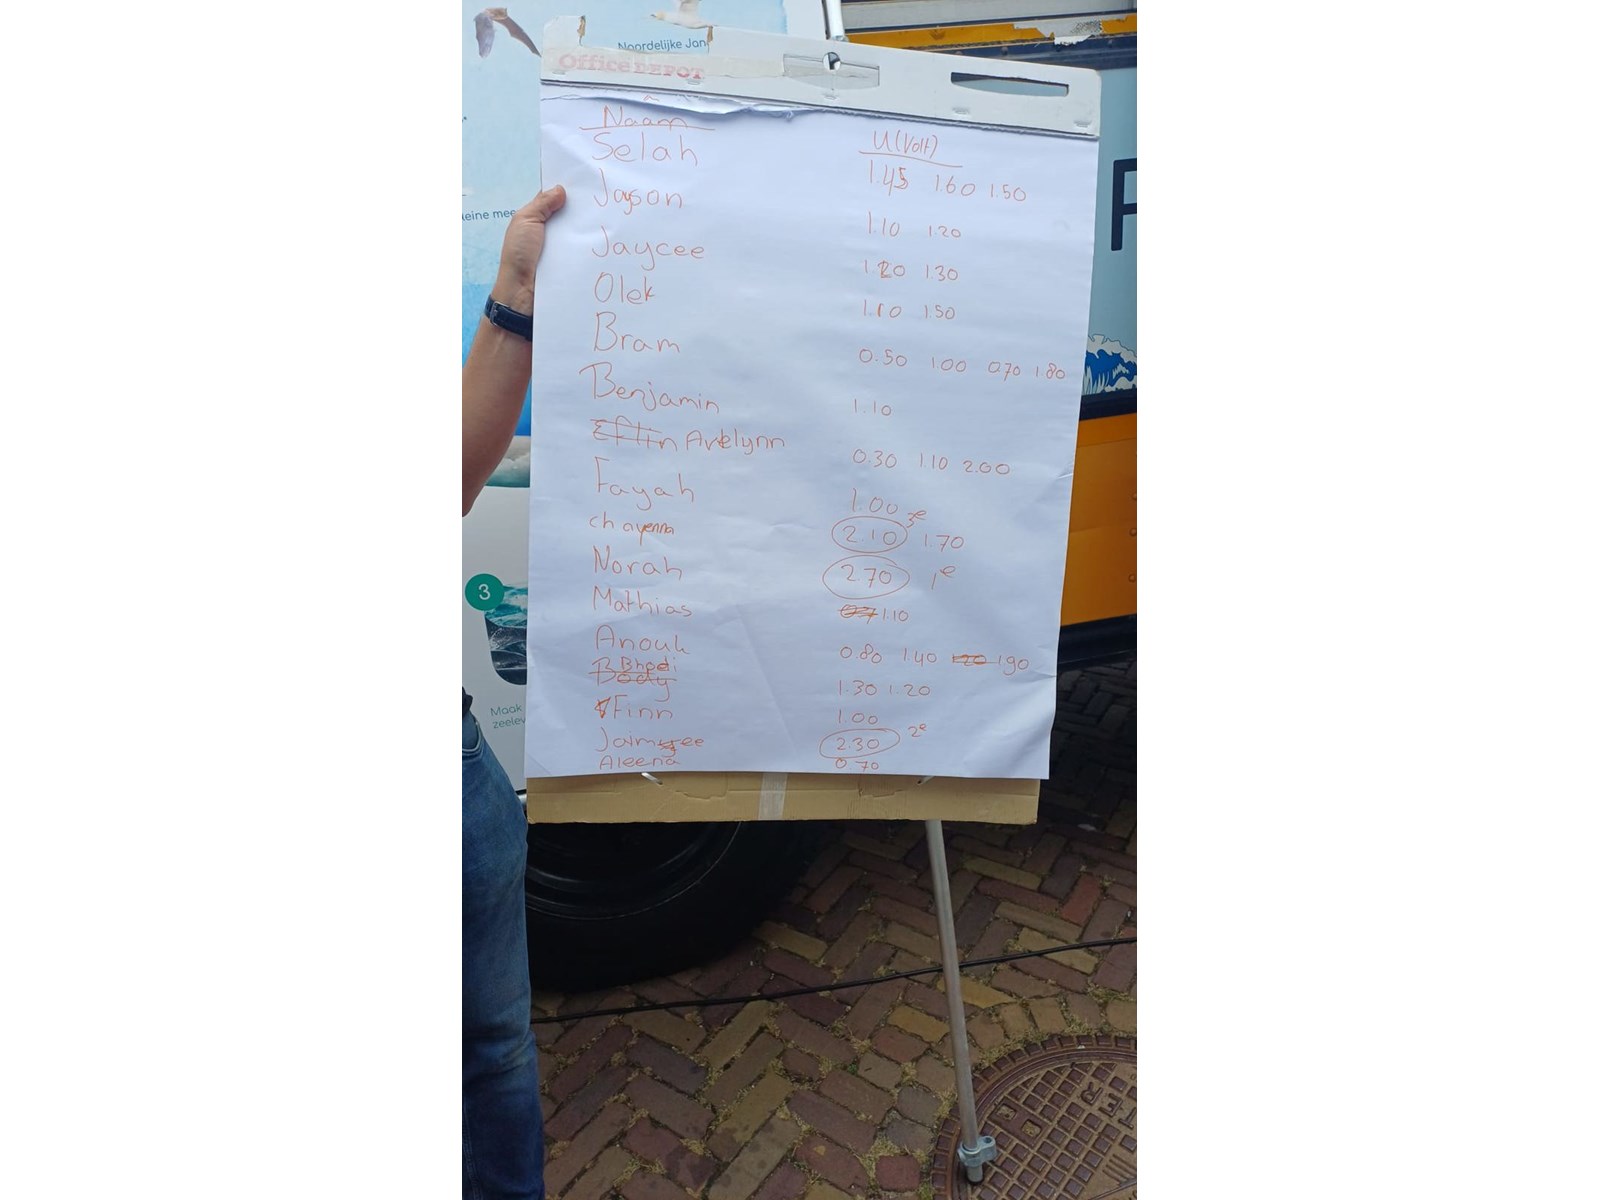 Noordelijke Jan
Office DEPOT
Naam U(Volt)
Selah 1.45 1.60 1.50
Jayson 1.10 1.20
Jaycee 1.20 1.30
Olek 1.10 1.50
Bram 0.50 1.00 0.70 1.80
Benjamin 1.10
Eflin Avelynn 0.30 1.10 2.00
Fayah 1.00
chayenna 2.10 3e 1.70
Norah 2.70 1e
Mathias 1.10
Anouk 0.80 1.40 1.90
Bhodi 1.30 1.20
Body
Finn 1.00
Jaimyee 2.30 2e
Aleena 0.70
leine mee
3
Maak
zeelev
F
TER